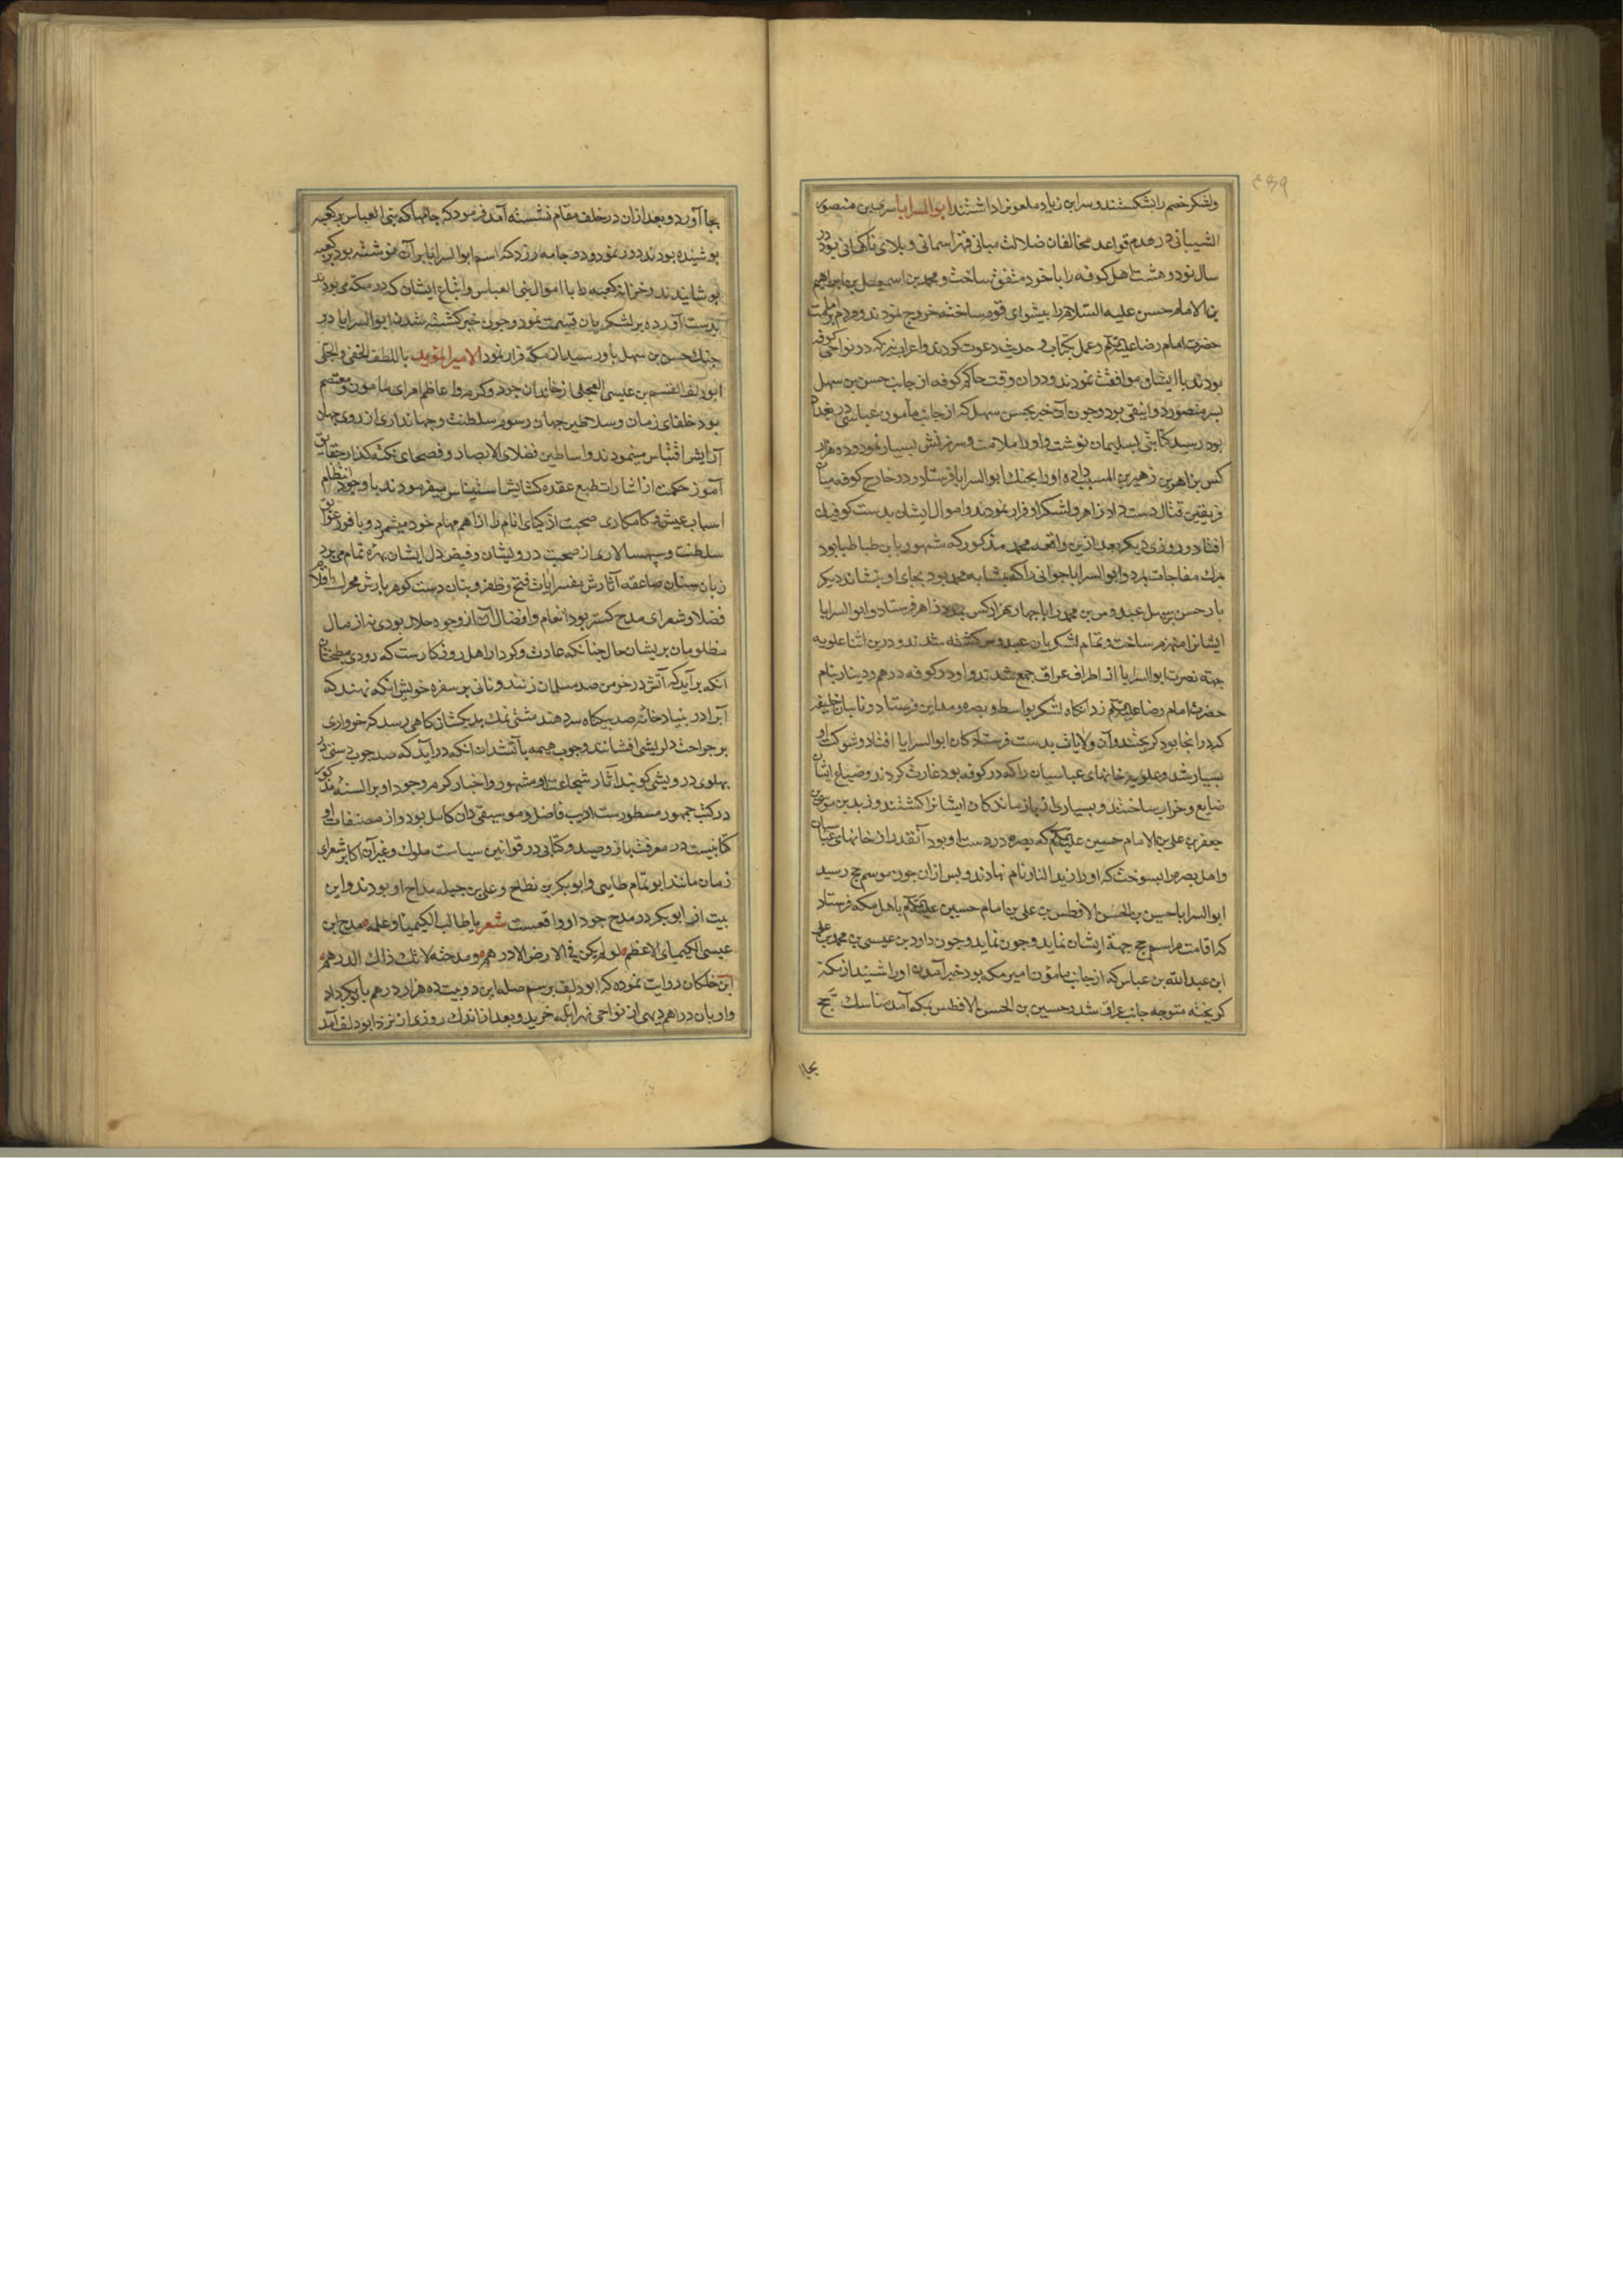 ولشکر خصم را بشکستند و سر ابن زیاد ملعون را داشتند ابو السرایا سری بن منصور
الشیبانی در هدم قواعد مخالفان ضلالت مبانی قهر اسمانی و بلای ناکهانی بود در
سال نود و هشت اهل کوفه را با خود متفق ساخت و محمد بن اسمعیل بن ابراهیم
بن الامام حسن علیه السلام را پیشوای قوم ساخته خروج نمودند و مردم را بامامت
حضرت امام رضا علیه السلم و عمل بکتاب و حدیث دعوت کردند و اعراب نیز که در نواحی کوفه
بودند با ایشان موافقت نمودند و در ان وقت حاکم کوفه از جانب حسن بن سهل
بسر منصور دوانیقی بود و چون آن خبر بحسن سهل که از جانب مأمون عباسی در بغداد
بود رسید کتابتی بسلیمان نوشت و او را ملامت و سرزنش بسیار نمود و ده هزار
کس بزاهر بن زهیر بن المسیب داده او را بجنک ابو السرایا فرستاد و در خارج کوفه میان
فریقین قتال دست داد زاهر و لشکر او فرار نمودند و اموال ایشان بدست کوفیان
افتاد و روزی دیکر بعد ازین واقعه محمد مذکور که مشهور بابن طباطبا بود
بمرك مفاجات بمرد و ابو السرایا جوانی را که مشابه محمد بود بجای او بنشاند دیکر
بار حسن بن سهل عبدوس بن محمد را با چهار هزار کس بمدد زاهر فرستاد و ابو السرایا
ایشانرا منهزم ساخت و تمام لشکریان عبدوس کشته شدند و درین اثنا علویه
جهة نصرت ابو السرایا از اطراف عراق جمع شدند و او در کوفه درهم و دینار بنام
حضرت امام رضا علیه السلم زد انکاه لشکر بواسط و بصره و مداین فرستاد و نایبان خلیفه
که در انجا بود کریختند و آن ولایات بدست فرستادکان ابو السرایا افتاد و شوکت او
بسیار شد و علویه خانهای عباسیان را که در کوفه بود غارت کردند و ضیاع ایشان
ضایع و خراب ساختند و بسیاری از بازماندکان ایشانرا کشتند و زید بن موسی بن
جعفر بن علی بن الامام حسین علیه السلم که بصره در دست او بود آنقدر از خانهای عباسیان
و اهل بصره را بسوخت که او را زید النار نام نهادند و بس ازان چون موسم حج رسید
ابو السرایا حسین بن الحسن الافطس بن علی بن امام حسین علیه السلم باهل مکه فرستاد
که اقامت مراسم حج جهة ایشان نماید و چون نماید و چون داود بن عیسی بن محمد بن علی
ابن عبد الله بن عباس که از جانب مامون امیر مکه بود خبر آمدن او را شنید از مکه
کریخته متوجه جانب عراق شد و حسین بن الحسن الافطس بمکه آمد مناسك حج
بجا
بجا آورد و بعد ازان در خلف مقام نشسته آمد فرمود که جامها که بنی العباس بر کعبه
پوشیده بودند دور نمود و دو جامه زرد که اسم ابو السرایا بر آن نوشته بود بر کعبه
پوشانیدند و خزانه کعبه را با اموال بنی العباس و اتباع ایشان که در مکه می بودند
بدست آورده بر لشکریان قسمت نمود و چون خبر کشته شدن ابو السرایا در
جنك حسن بن سهل باو رسید از مکه فرار نمود الامیر المؤید باللطف الخفی و الجلی
ابو دلف القسم بن عیسی العجلی از خاندان جود و کرم و از اعاظم امرای مامون و معتصم
بود خلفای زمان و سلاطین جهان رسوم سلطنت و جهانداری از روی جهان
آرایش اقتباس مینمودند و اساطین فضلای الابصار و فصحای نکته کذار حقایق
آموز حکمت از اشارات طبع عقده کشایش استیناس میفرمودند با وجود انتظام
اسباب عیش و کامکاری صحبت اذکیای انام را از اهم مهام خود میشمرد و با وفور عوایق
سلطنت و سپهسالاری از صحبت درویشان و فیض دل ایشان بهره تمام می برد
زبان سنان صاعقه آثارش مفسر ایات فتح و ظفر و بنان دست کوهر بارش محرك اقلام
فضلا و شعرای مدح کستر بود انعام و افضال آنان از وجوه حلال بودی نه از مال
مظلومان بریشان حال چنانکه عادت و کردار اهل روزکارست که دودی مطبخشان
انکه برآید که آتش در خرمن صد مسلمان زنند و نانی بر سفره خویش انکه نهند که
آب را در بنیاد خانه صد بیکناه سر دهند مشتی نمك بدیکشان کاهی رسد که خرواری
بر جراحت دلریشی افشانند و چوب هیمه بآتشدان انکه در آید که صد چوب دستی بر
پهلوی درویشی کوبند آثار شجاعت او مشهور و اخبار کرم و جود او بر السنه مذکور
در کتب جمهور مسطورست ادیب فاضل و موسیقی دان کامل بود و از مصنفات او
کتابیست در معرفت باز و صید و کتابی در قوانین سیاست ملوك و غیر آن اکابر شعرای
زمان مانند ابو تمام طایی و ابو بکر بن نطاح و علی بن جبله مداح او بودند و این
بیت از ابو بکر در مدح جود او واقعست شعر یا طالب الکیمیاء و علمه مدح ابن
عیسی الکیمیای الاعظم لو لم یکن فی الارض الا درهم و مدحته لاتاك ذاك الدرهم
ابن خلکان روایت نموده که ابو دلف برسم صله این دو بیت ده هزار درهم بابو بکر داد
و او بان دراهم دیهی از نواحی نهر ابله خرید و بعد از اندك روزی از نزد ابو دلف آمد